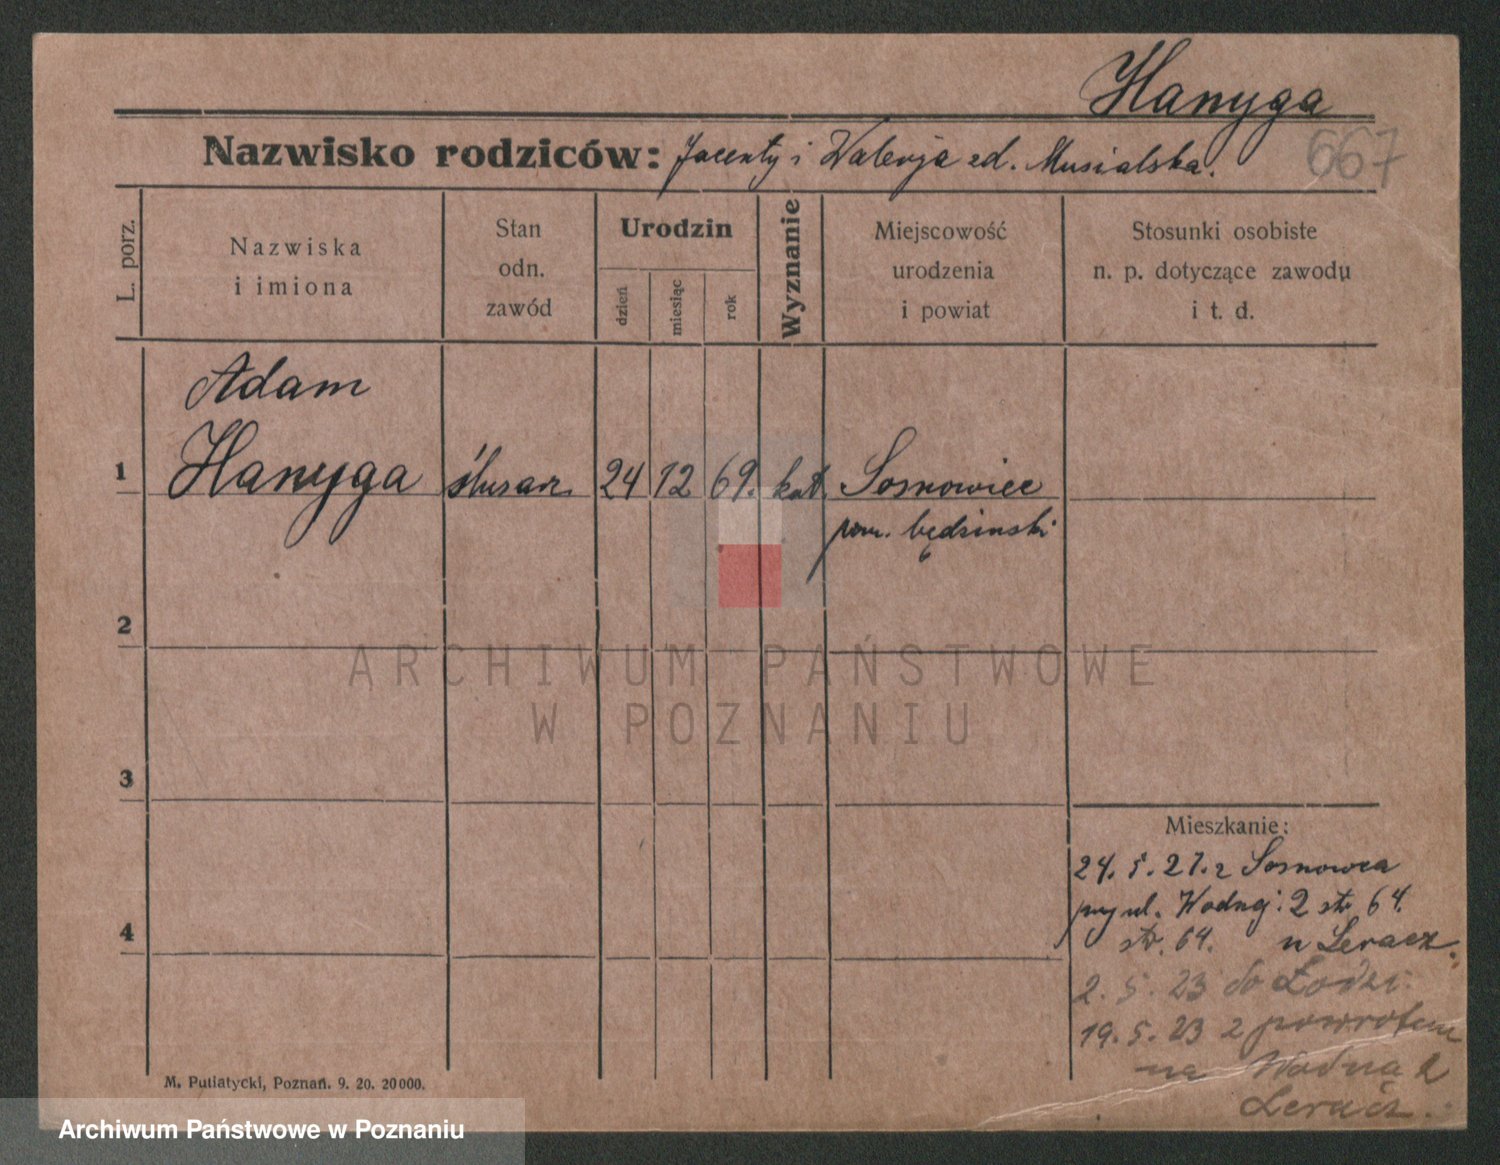 Hanyga
Nazwisko rodziców: Jacenty i Walerja zd. Musialska.
667
L. porz.
Nazwiska
i imiona
Stan
odn.
zawód
Urodzin
dzień
miesiąc
rok
Wyznanie
Miejscowość
urodzenia
i powiat
Stosunki osobiste
n. p. dotyczące zawodu
i t. d.
Adam
1 Hanyga ślusarz 24 12 69. kat. Sosnowiec
pow. będzinski
2
ARCHIWUM PAŃSTWOWE
W POZNANIU
3
Mieszkanie:
24. 5. 21. z Sosnowca
przy ul. Wodnej 2 str 64.
4
str. 64. u Leracz.
2. 5. 23 do Łodzi.
19. 5. 23 z powrotem
na Wodna 2
Leracz.
M. Putiatycki, Poznań. 9. 20. 20000.
Archiwum Państwowe w Poznaniu